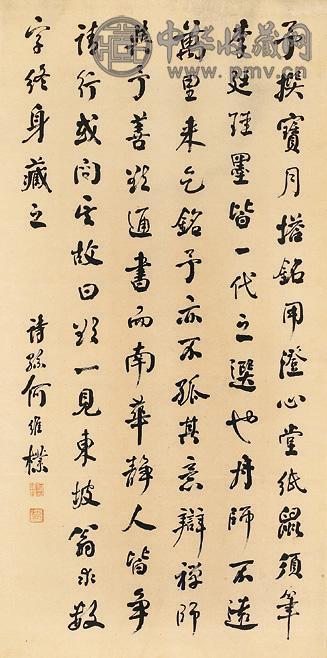 予撰寶月塔銘用澄心堂紙鼠須筆
李廷珪墨皆一代之選也舟師不遠
萬里来乞銘予亦不孤其意辯禪師
與予善欲通書而南華靜人皆争
請行或問其故曰欲一見東坡翁求數
字終身藏之
詩孫何維樸
中华收藏网
www.pmv.cn